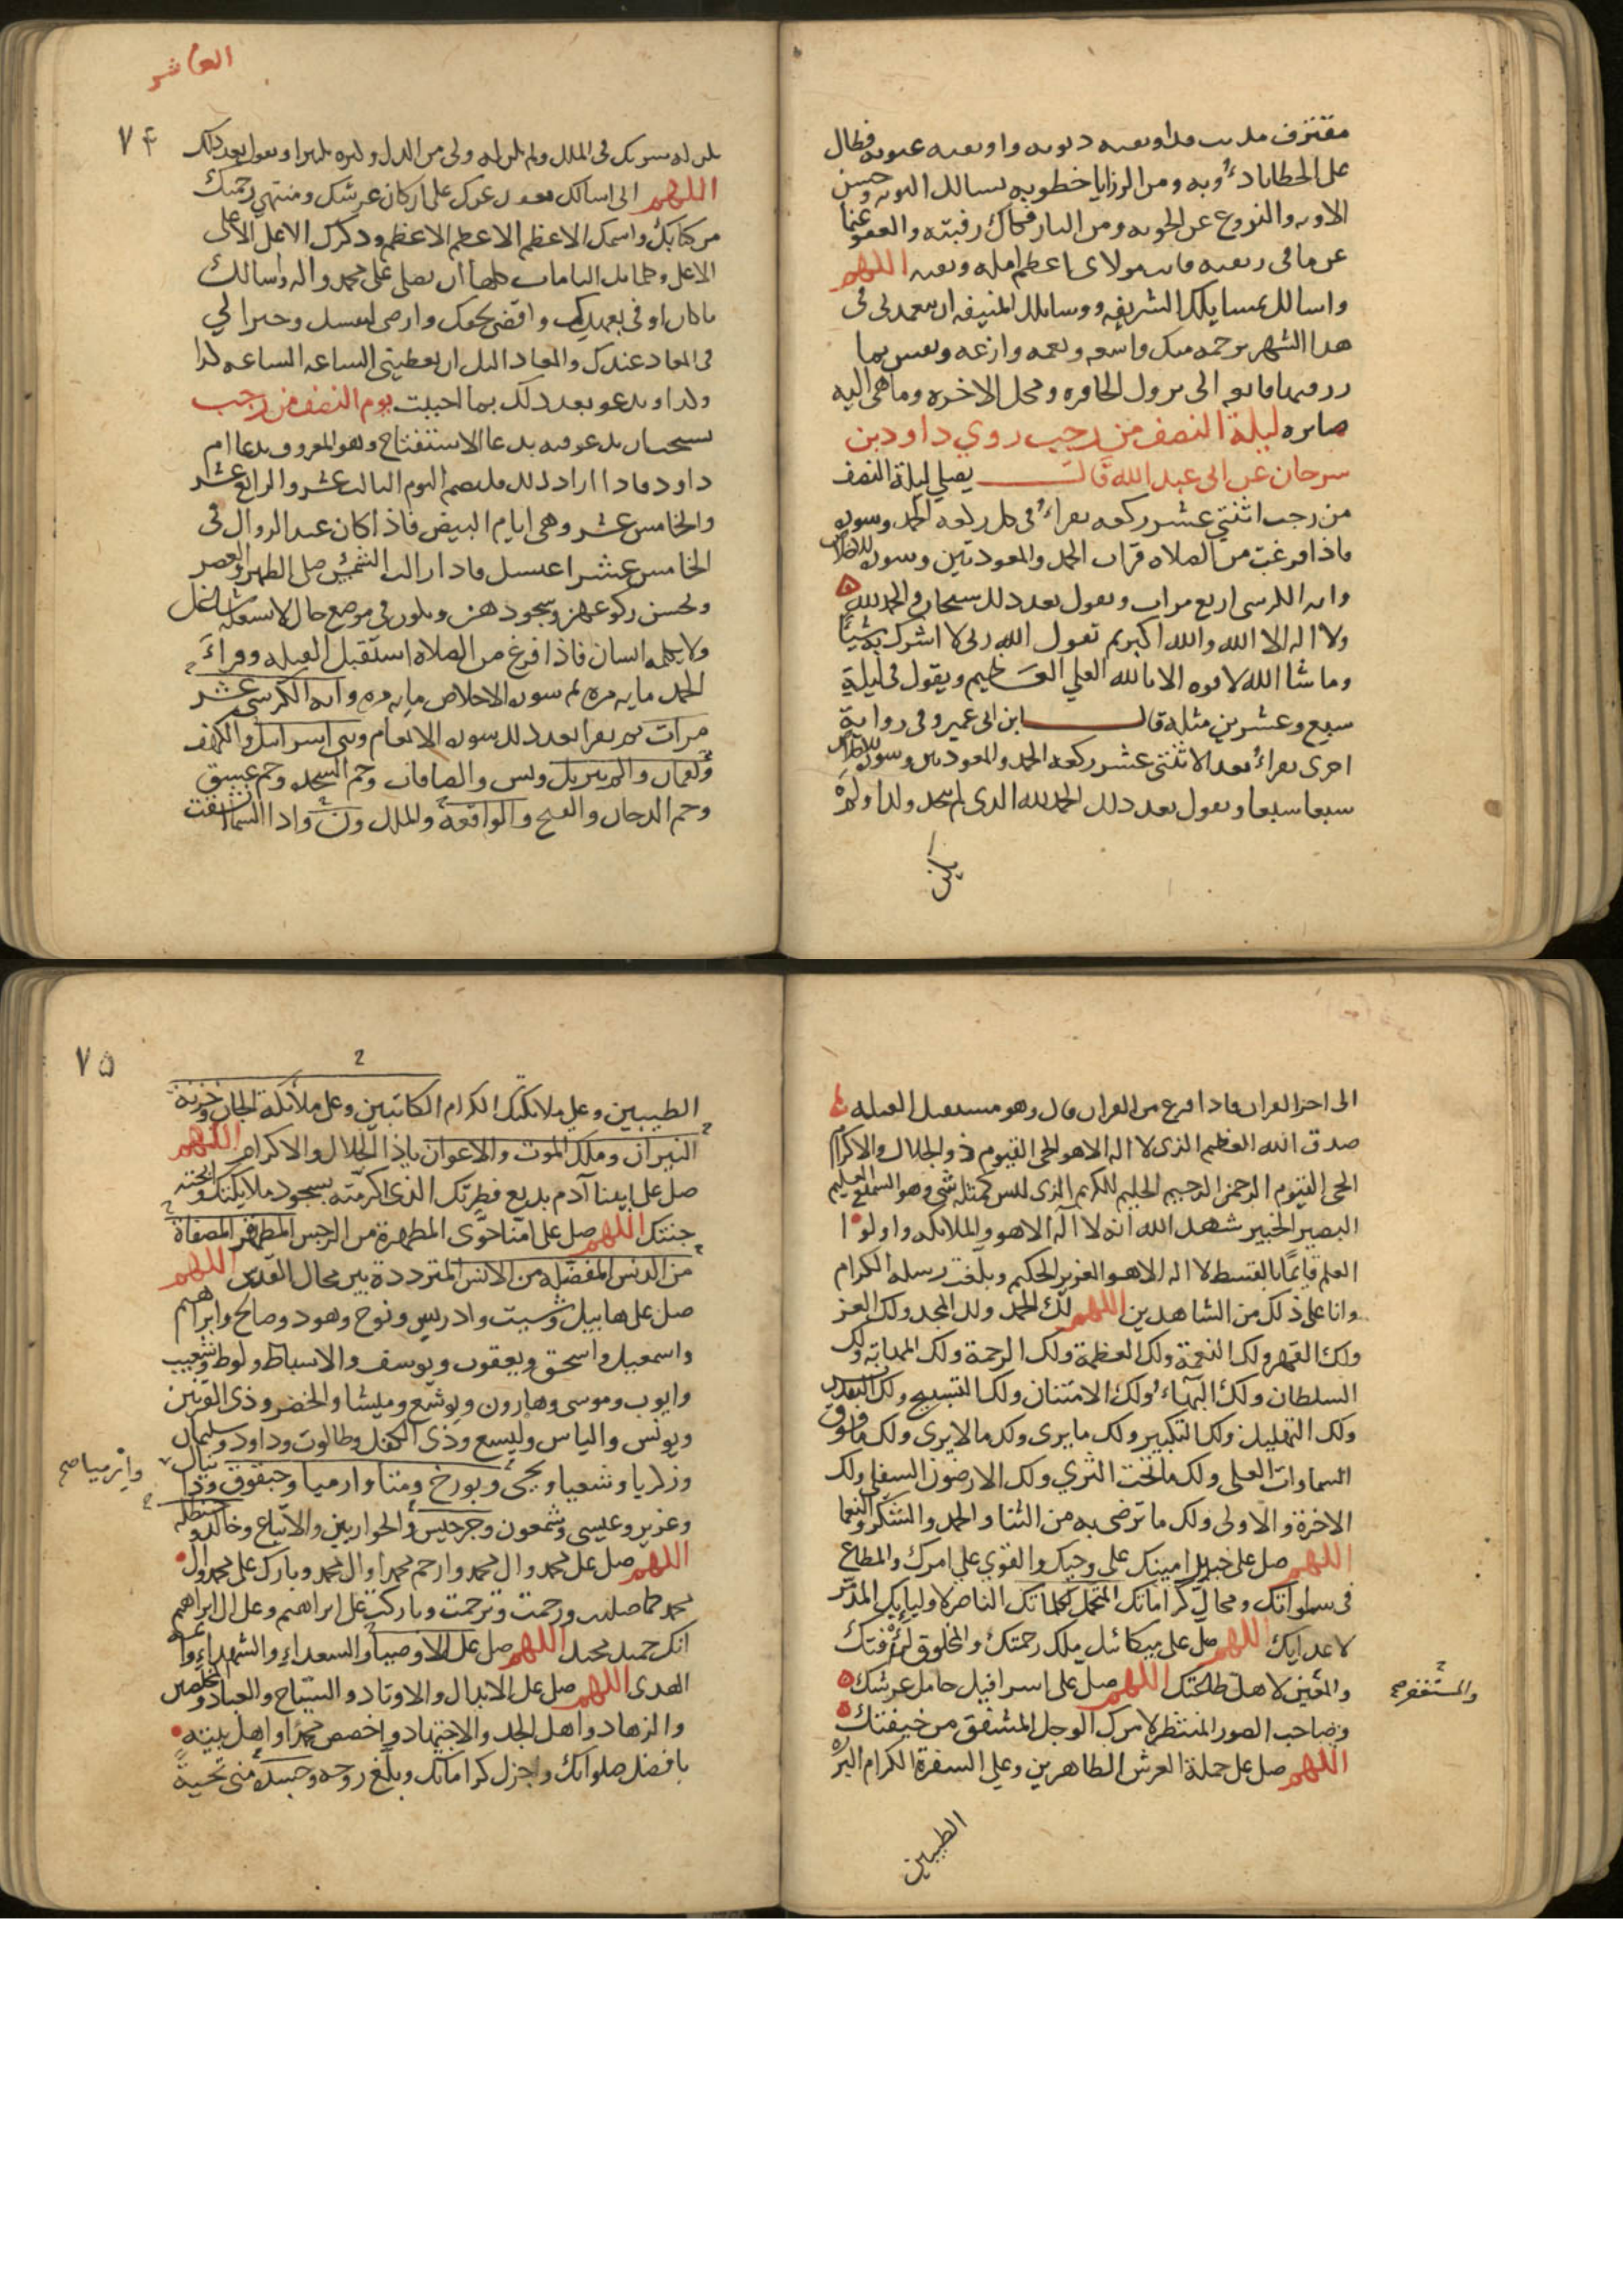 مقترف مذنب قد اوبقته ذنوبه واوبقته عيوبه فطال
على الخطايا دءوبه ومن الرزايا خطوبه يسالك التوبه وحسن
الاوبه والنزوع عن الحوبه ومن النار فكاك رقبته والعفو عنها
عن ما في ربقته فانت مولاى اعظم امله وثقته اللهم
واسالك بمسايلك الشريفه ووسايلك المنيفه ان تتغمدني في
هذا الشهر برحمه منك واسعه ونعمه وازعه ونفس بما
رزقتها قانعه الى نزول الحافره ومحل الاخره وما هى اليه
صايره ليلة النصف من رجب روي داود بن
سرحان عن ابي عبد الله قال يصلي ليلة النصف
من رجب اثنتي عشر ركعه يقراء في كل ركعه الحمد وسوره
فاذا فرغت من الصلاه قرات الحمد والمعوذتين وسوره الاخلاص
وايه الكرسي اربع مرات ويقول بعد ذلك سبحان الله والحمد لله
ولا اله الا الله والله اكبر ثم تقول الله ربي لا اشرك به شيئا
وما شا الله لا قوه الا بالله العلي العظيم ويقول في ليلة
سبع وعشرين مثله قال ابن ابي عمير وفي رواية
اخرى يقراء بعد الاثنتي عشر ركعه الحمد والمعوذتين وسوره الاخلاص
سبعا سبعا ويقول بعد ذلك الحمد لله الذي لم يتخذ ولدا ولم
يكن
العاشر
۷۴
يكن له شريك في الملك ولم يكن له ولى من الذل وكبره تكبيرا ويقول بعد ذلك
اللهم انى اسالك بمعاقد عزك على اركان عرشك ومنتهي رحمتك
من كتابك واسمك الاعظم الاعظم الاعظم وذكرك الاعلى الاعلى
الاعلى وكلماتك التامات كلها ان تصلى على محمد واله واسالك
ما كان اوفى بعهدك واقضى بحقك وارضى لنفسك وخيرا لي
في المعاد عندك والمعاد اليك ان تعطيني الساعه الساعه كذا
وكذا ويدعو بعد ذلك بما احببت يوم النصف من رجب
يستحب ان يدعو فيه بدعا الاستفتاح وهو المعروف بدعا ام
داود فاذا اراد ذلك فليصم اليوم الثالث عشر والرابع عشر
والخامس عشر وهى ايام البيض فاذا كان عند الزوال في
الخامس عشر اغتسل فاذا زالت الشمس صلى الظهر والعصر
ويحسن ركوعهن وسجودهن ويكون في موضع خال لا يشغله شاغل
ولا يكلمه انسان فاذا فرغ من الصلاه استقبل القبله وقراء
الحمد مايه مره ثم سوره الاخلاص مايه مره وايه الكرسي عشر
مرات ثم يقرا بعد ذلك سوره الانعام وبني اسرائيل والكهف
ولقمان والم تنزيل ويس والصافات وحم السجده وحم عسق
وحم الدخان والفتح والواقعه والملك ون واذا السما انشقت
الى اخر القران فاذا فرغ من القران قال وهو مستقبل القبله
صدق الله العظيم الذى لا اله الا هو الحى القيوم ذو الجلال والاكرام
الحى القيوم الرحمن الرحيم الحليم الكريم الذى ليس كمثله شى وهو السميع العليم
البصير الخبير شهد الله انه لا اله الا هو والملائكه واولوا
العلم قايما بالقسط لا اله الا هو العزيز الحكيم وبلغت رسله الكرام
وانا على ذلك من الشاهدين اللهم لك الحمد ولك المجد ولك العز
ولك القهر ولك النعمة ولك العظمة ولك الرحمة ولك المهابة ولك
السلطان ولك البهاء ولك الامتنان ولك التسبيح ولك التقديس
ولك التهليل ولك التكبير ولك ما يرى ولك ما لا يرى ولك ما فوق
السماوات العلى ولك ما تحت الثرى ولك الارضون السفلى ولك
الاخرة والاولى ولك ما ترضى به من الثنا والحمد والشكر والنعما
اللهم صل على جبريل امينك على وحيك والقوي على امرك والمطاع
في سماواتك ومحال كراماتك المتحمل لكلماتك الناصر لاوليايك المدمر
لاعدايك اللهم صل على ميكائيل ملك رحمتك والمخلوق لرأفتك
والمعين لاهل طاعتك اللهم صل على اسرافيل حامل عرشك
والمستغفر صح
وصاحب الصور المنتظر لامرك الوجل المشفق من خيفتك
اللهم صل على حملة العرش الطاهرين وعلى السفرة الكرام البررة
الطيبين
۷۵
الطيبين وعلى ملائكتك الكرام الكاتبين وعلى ملائكة الجنان وخزنة
النيران وملك الموت والاعوان ياذا الجلال والاكرام اللهم
صل على ابينا آدم بديع فطرتك الذى اكرمته بسجود ملايكتك وابحته
جنتك اللهم صل على امنا حوى المطهرة من الرجس المصفاة
من الدنس المفضله من الانس المترددة بين محال القدس اللهم
صل على هابيل وشيث وادريس ونوح وهود وصالح وابراهيم
واسمعيل واسحق ويعقوب ويوسف والاسباط ولوط وشعيب
وايوب وموسى وهارون ويوشع وميشا والخضر وذى القرنين
ويونس والياس واليسع وذى الكفل وطالوت وداود وسليمان
وزكريا وشعيا ويحيى وتورخ ومتا وارميا وحبقوق ودانيال
وارميا صح
وعزير وعيسى وشمعون وجرجيس والحواريين والاتباع وخالد وحنظله
اللهم صل على محمد وال محمد وارحم محمدا وال محمد وبارك على محمد وال
محمد كما صليت ورحمت وترحمت وباركت على ابراهيم وعلى ال ابراهيم
انك حميد مجيد اللهم صل على الاوصيا والسعداء والشهداء وائمة
الهدى اللهم صل على الابدال والاوتاد والسياح والعباد والمخلصين
والزهاد واهل الجد والاجتهاد واخصص محمدا واهل بيته
بافضل صلواتك واجزل كراماتك وبلغ روحه وجسده منى تحية